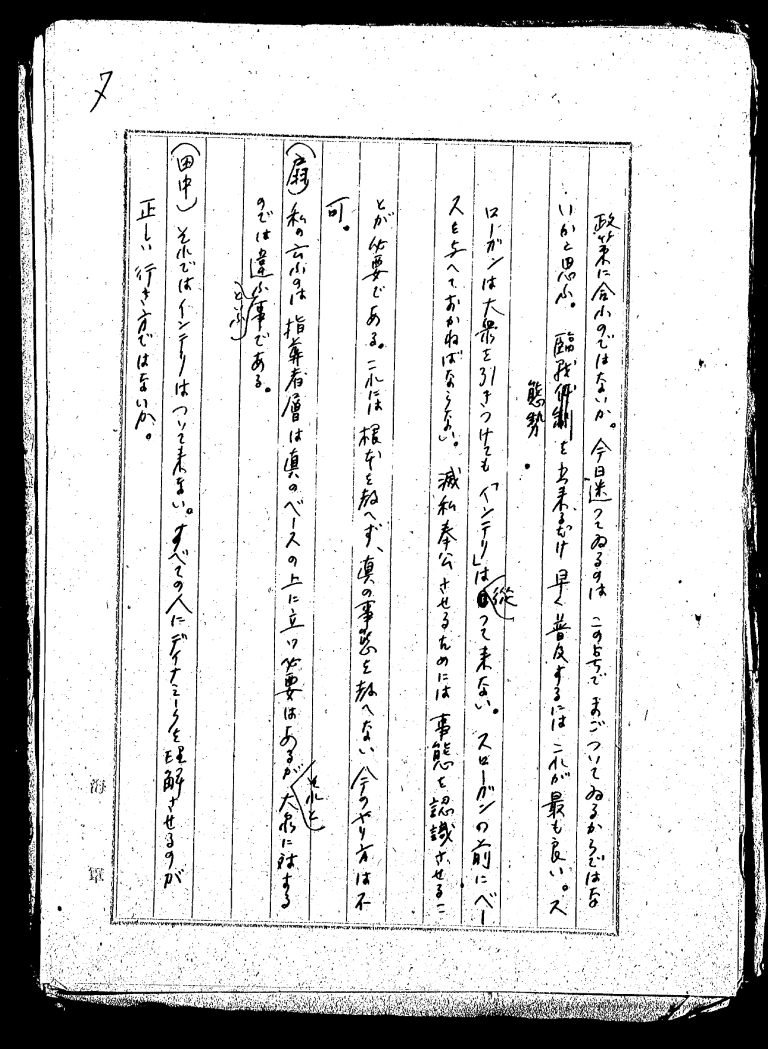 7
政策に合ふのではないか。今日迷つてゐるのは この点で まごついてゐるからではな
いかと思ふ。 臨戦体制を出来るだけ 早く普及するには これが最も良い。ス
態勢
ローガンは大衆を引きつけても「インテリ」は従つて来ない。 スローガンの前にベー
スを与へておかねばならない。 滅私奉公させるためには 事態を認識させるこ
とが必要である。これには 根本を教へず、真の事態を教へない 今のやり方は不
可。
(扇) 私の云ふのは 指導者層は真のベースの上に立つ必要はあるが それと 大衆に対する
のでは違ふといふ事である。
(田中) それではインテリはついて来ない。すべての人にデイナミークを理解させるのが
正しい行き方ではないか。
海軍